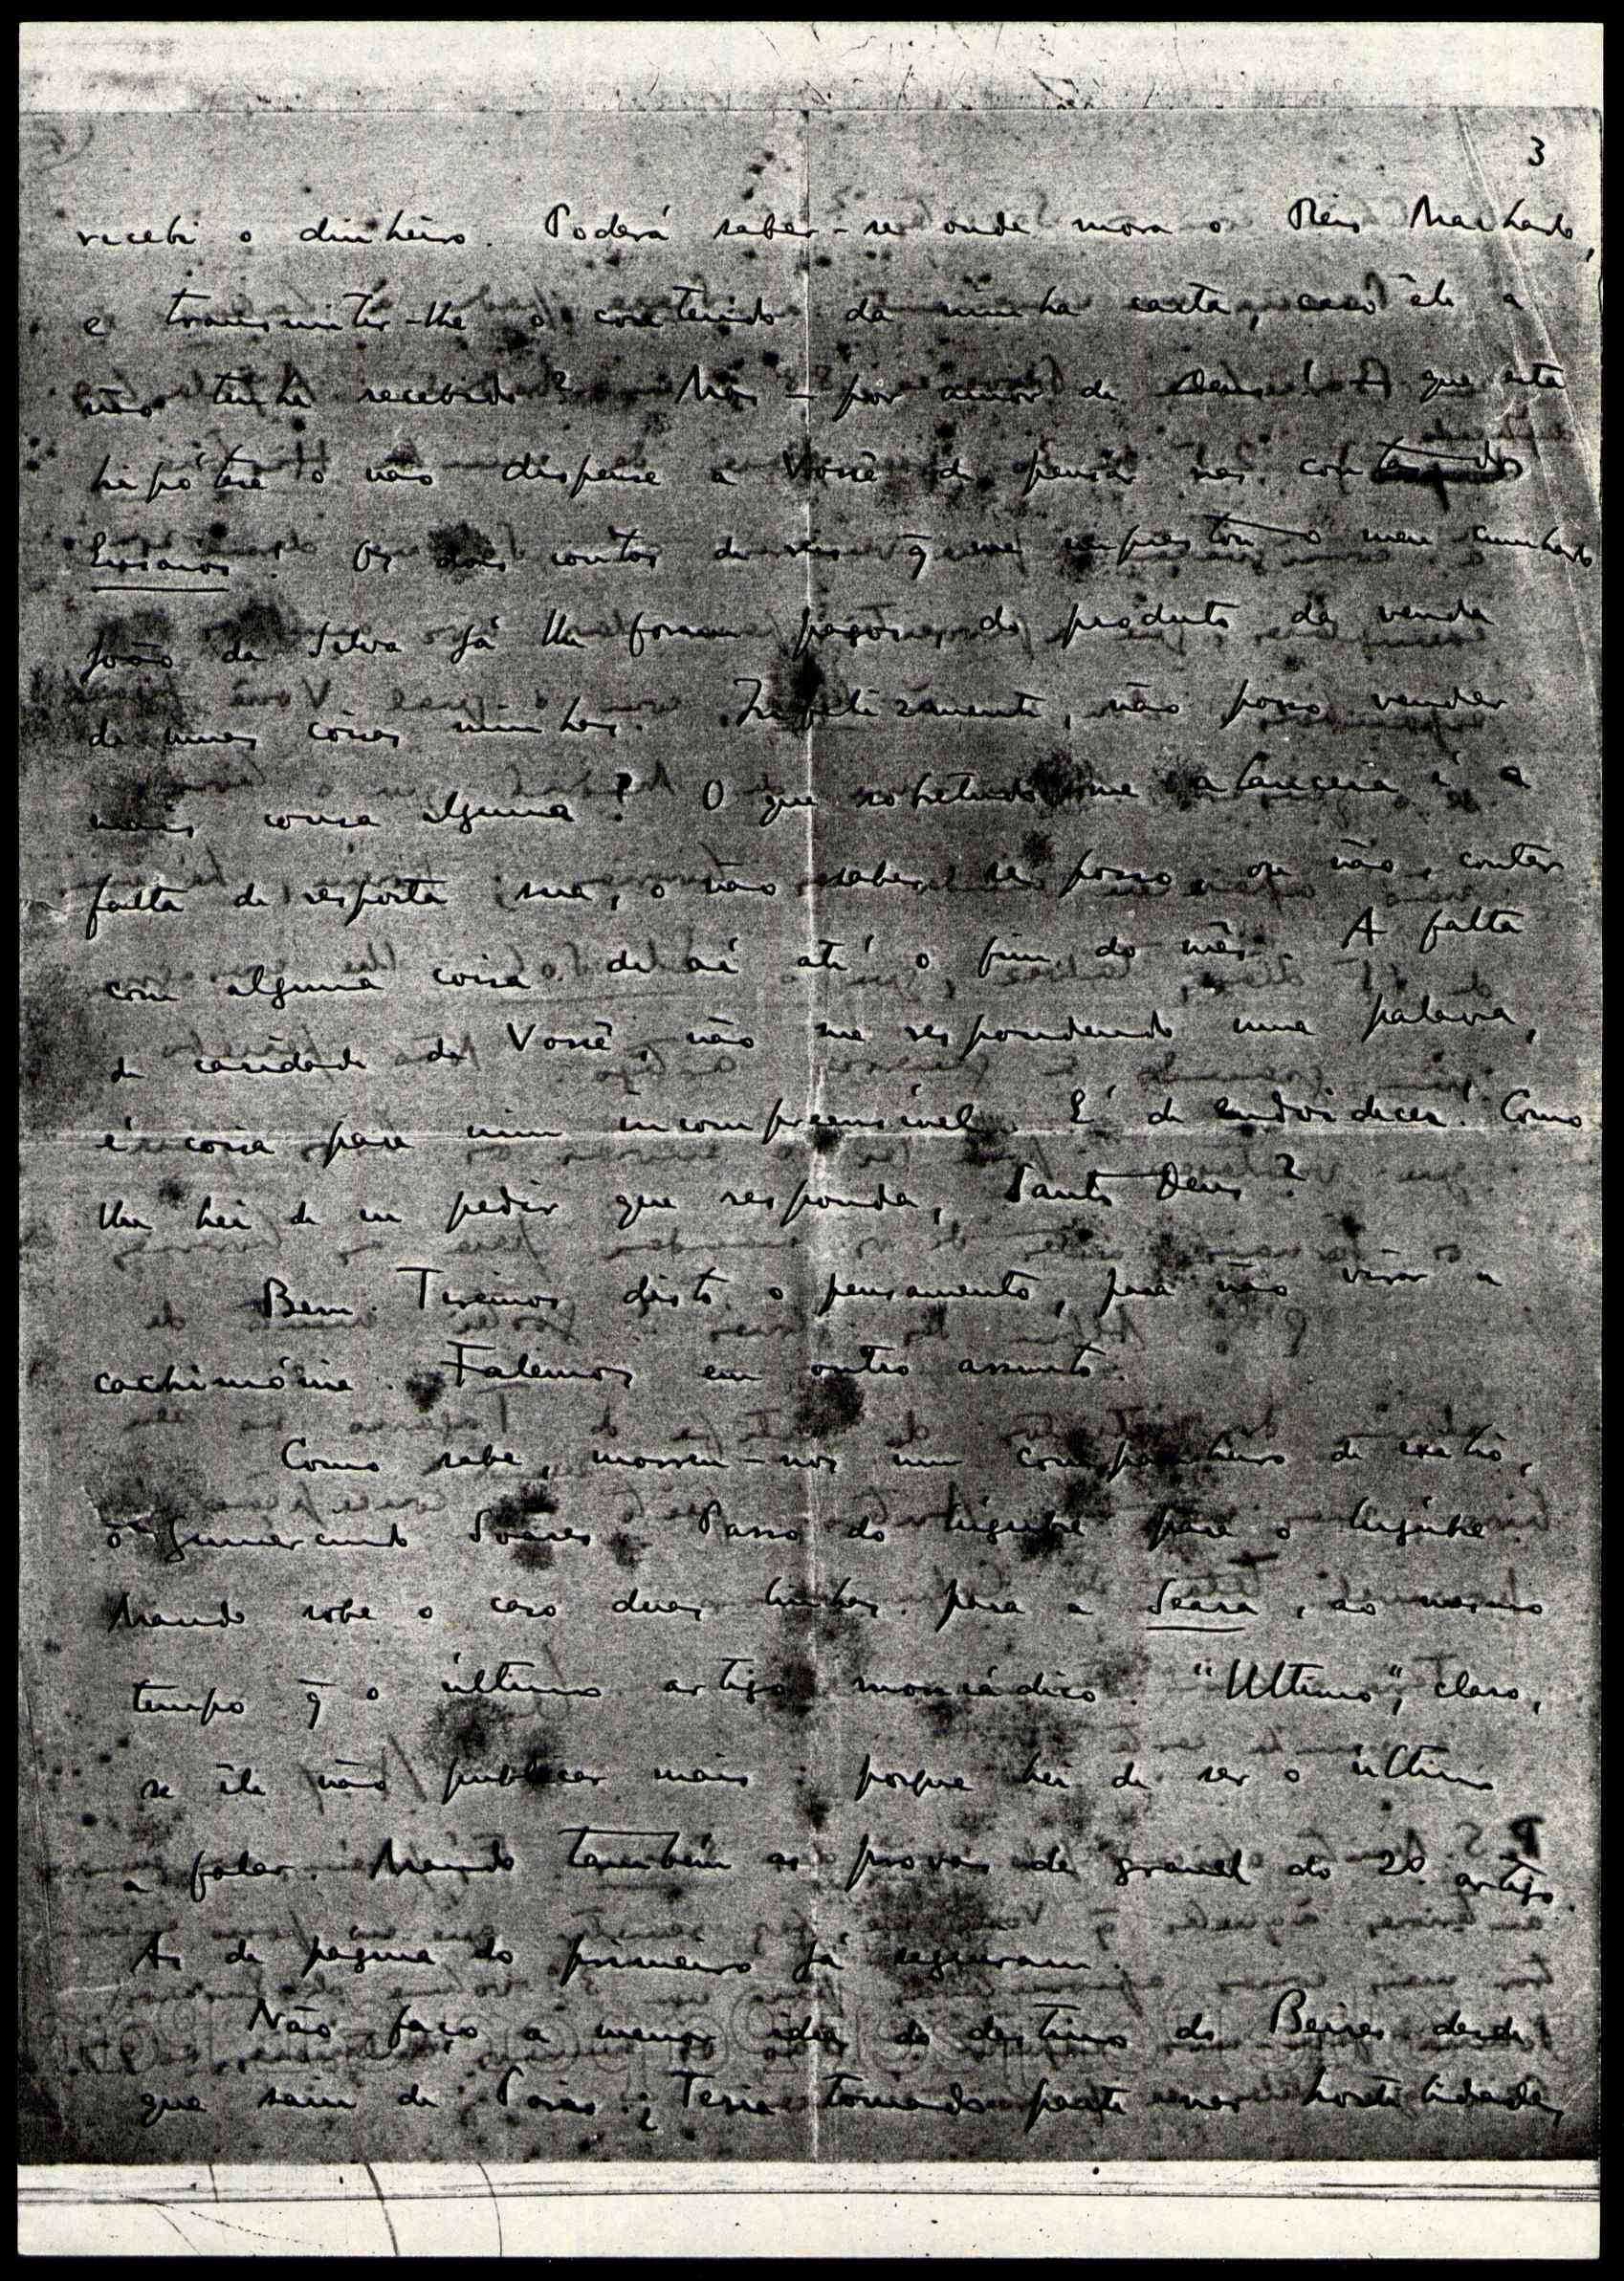 3
recebi o dinheiro. Poderá saber-se onde mora o Réis Machado,
e transmitir-lhe o conteúdo da minha carta, caso êle a
não tenha recebido? Mas – por amor de Deus! – que esta
hipótese o não dispense a Você de pensar nas
Ensaios! Os dois contos de reis q̃ me emprestou o meu cunhado
João da Silva já lhe foram pagos, do produto da venda
de umas coisas minhas. Infelizmente, não posso vender
mais coisa alguma! O que sobretudo me alanceia é a
falta de resposta sua, o não saber se posso, ou não, contar
com alguma coisa de aí até o fim do mês. A falta
de caridade de Você, não me respondendo uma palavra,
é coisa para mim incompreensível. É de endoidecer! Como
lhe hei de eu pedir que responda, Santo Deus?
Bem. Tiremos disto o pensamento, para não virar a
cachimónia. Falemos em outro assunto.
Como sabe, morreu-nos um companheiro de exílio,
o Gumercindo Soares. Passo do lúgubre para o lúgubre.
Mando sobre o caso duas linhas para a Seara, ao mesmo
tempo q̃ o último artigo monádico. "Ultimo", claro,
se êle não publicar mais: porque hei de ser o último
a falar. Mando também as provas de granel do 2º artigo.
As de página do primeiro já seguiram.
Não faço a menor idea do destino do Beires desde
que saiu de Paris. ¿Teria tomado parte nas hostilidades,